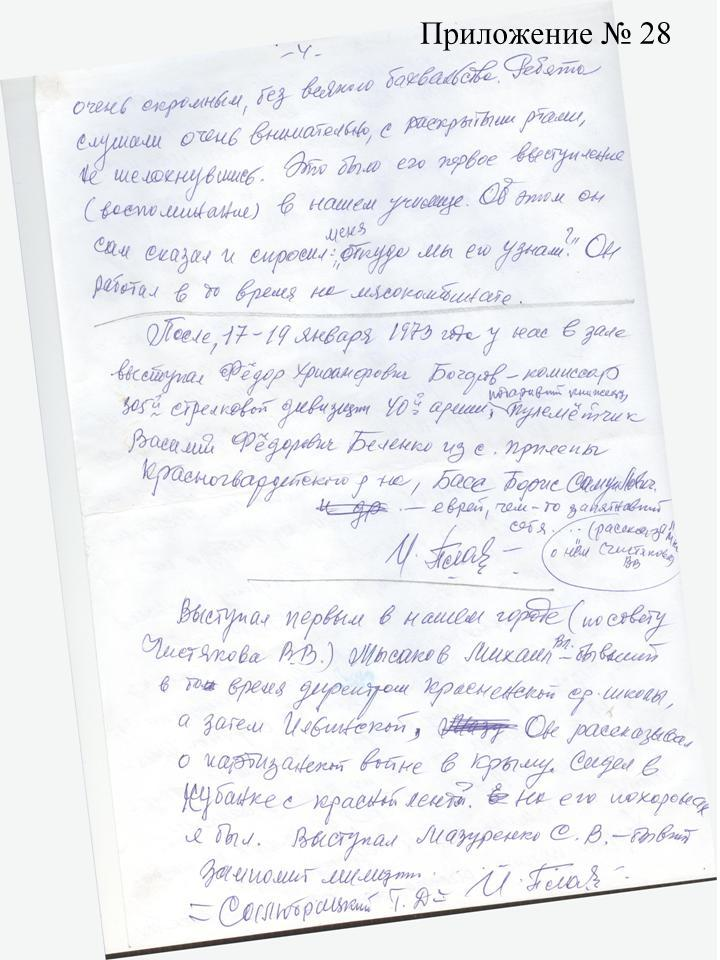 Приложение № 28
-4-
очень скромным, без всякого бахвальства. Ребята
слушали очень внимательно, с раскрытыми ртами,
не шелохнувшись. Это было его первое выступление
(воспоминание) в нашем училище. Об этом он
сам сказал и спросил меня: "откуда мы его узнали?" Он
работал в то время на мясокомбинате.
После, 17-19 января 1973 года у нас в зале
выступал Фёдор Хрисанфович Богдов - комиссар
305й стрелковой дивизии 40й армии, пулемётчик
Василий Фёдорович Беленко из с. Прилепы
Красногвардейского р-на, Басс Борис Самуйлович
и др. - еврей, чем-то запятнавший
себя... (рассказал мне
о нём Чистяков
ВВ
И.
Выступал первым в нашем городе (по совету
Чистякова В.В.) Мысаков Михаил Вл. - бывший
в то время директором Красненской ср. школы,
а затем Он рассказывал
о партизанской войне в Крыму. Сидел в
Кубанке с красной лентой. На его похоронах
я был. Выступал Мазуренко С. В. - бывший
замполит милиции.
= Т. Д = И.